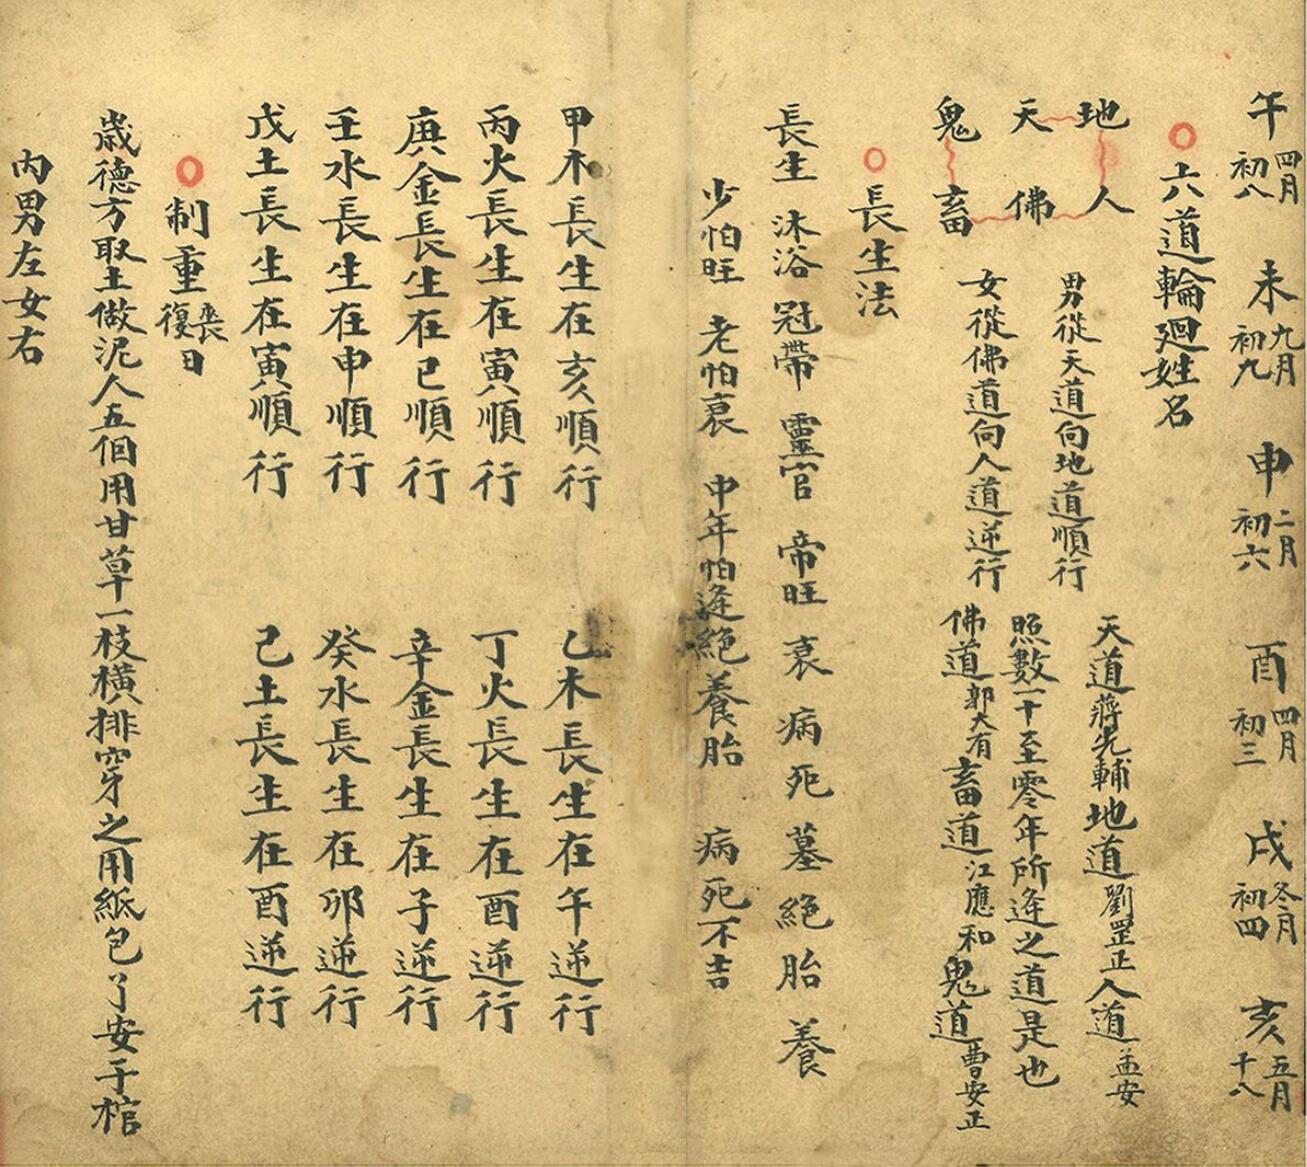 午四月初八 未九月初九 申二月初六 酉四月初三 戌冬月初四 亥五月十八
○六道輪廻姓名
地 人
天 佛
鬼 畜
男從天道向地道順行
女從佛道向人道逆行
天道蔣先輔地道劉罡正人道孟安
照數一十至零年所逄之道是也
佛道郭大有畜道江應和鬼道曹安正
○長生法
長生 沐浴 冠帶 靈官 帝旺 衰 病 死 墓 絕 胎 養
少怕旺 老怕衰 中年怕逄絕養胎 病死不吉
甲木長生在亥順行 乙木長生在午逆行
丙火長生在寅順行 丁火長生在酉逆行
庚金長生在巳順行 辛金長生在子逆行
壬水長生在申順行 癸水長生在卯逆行
戊土長生在寅順行 己土長生在酉逆行
○制重喪復日
歲德方取土做泥人五個用甘草一枝橫排穿之用紙包了安于棺
內男左女右